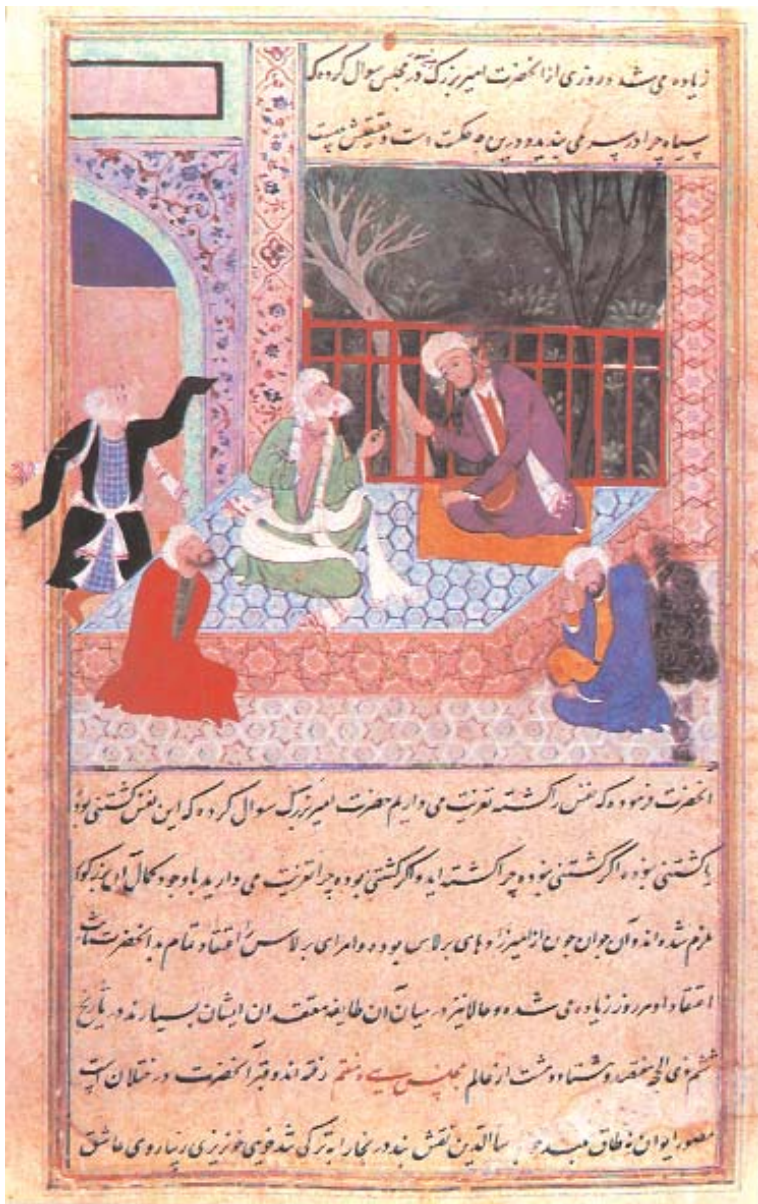 زیاده می شد و روزی از آنحضرت امیر بزرگ در مجلس سوال کرده که
سیاه چرا در سر می بندید و درین چه حکمت است و حقیقتش چیست
آنحضرت فرموده که نفس را کشته تعزیت می داریم حضرت امیر بزرگ سوال کرده که این نفس کشتنی بوده
یا کشتنی نبوده اگر کشتنی نبوده چرا کشته اید و اگر کشتنی بوده چرا تعزیت می دارید با وجود کمال آن بزرگوار
ملزم شده اند و آن جوان چون از امیرزادهای برلاس بوده و امرای برلاس را اعتقاد تمام به آنحضرت
اعتقاد او هر روز زیاده می شده و حالا نیز در میان آن طایفه معتقدان ایشان بسیارند در تاریخ
ششم ذی الحجه هفتصد و هشتاد و هشت از عالم رفته اند و قبر آنحضرت در ختلان است مجلس سی و هفتم
مصور ایوان نه طاق خواجه بهاالدین نقش بند در بخارا به ترکی شد خوبی خونریزی زیباروی عاشق